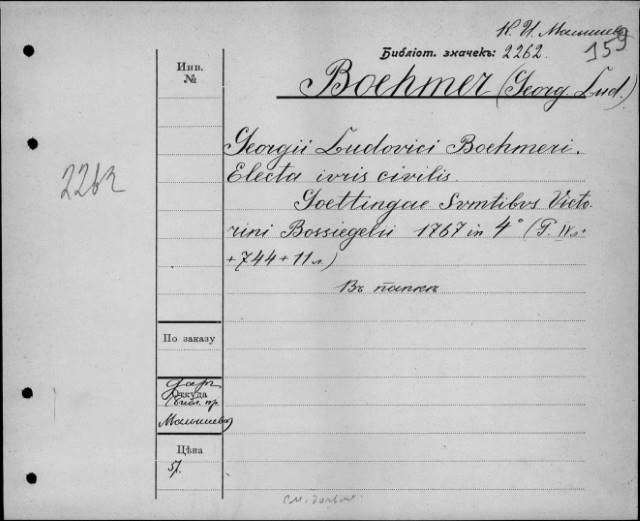 К. И. Малышев
159
Библіот. значекъ: 2262.
Инв.
№
Boehmer (Georg. Lud.)
Georgii Ludovici Boehmeri.
Electa ivris civilis.
2262
Goettingae Svmtibvs Victo-
rini Bossiegelii 1767 in 4° (T. IV л.
+ 744 + 11 л.)
Въ папкѣ
По заказу
Даръ
Откуда
библ. пр.
Малышева
Цѣна
5/.
см. далѣе